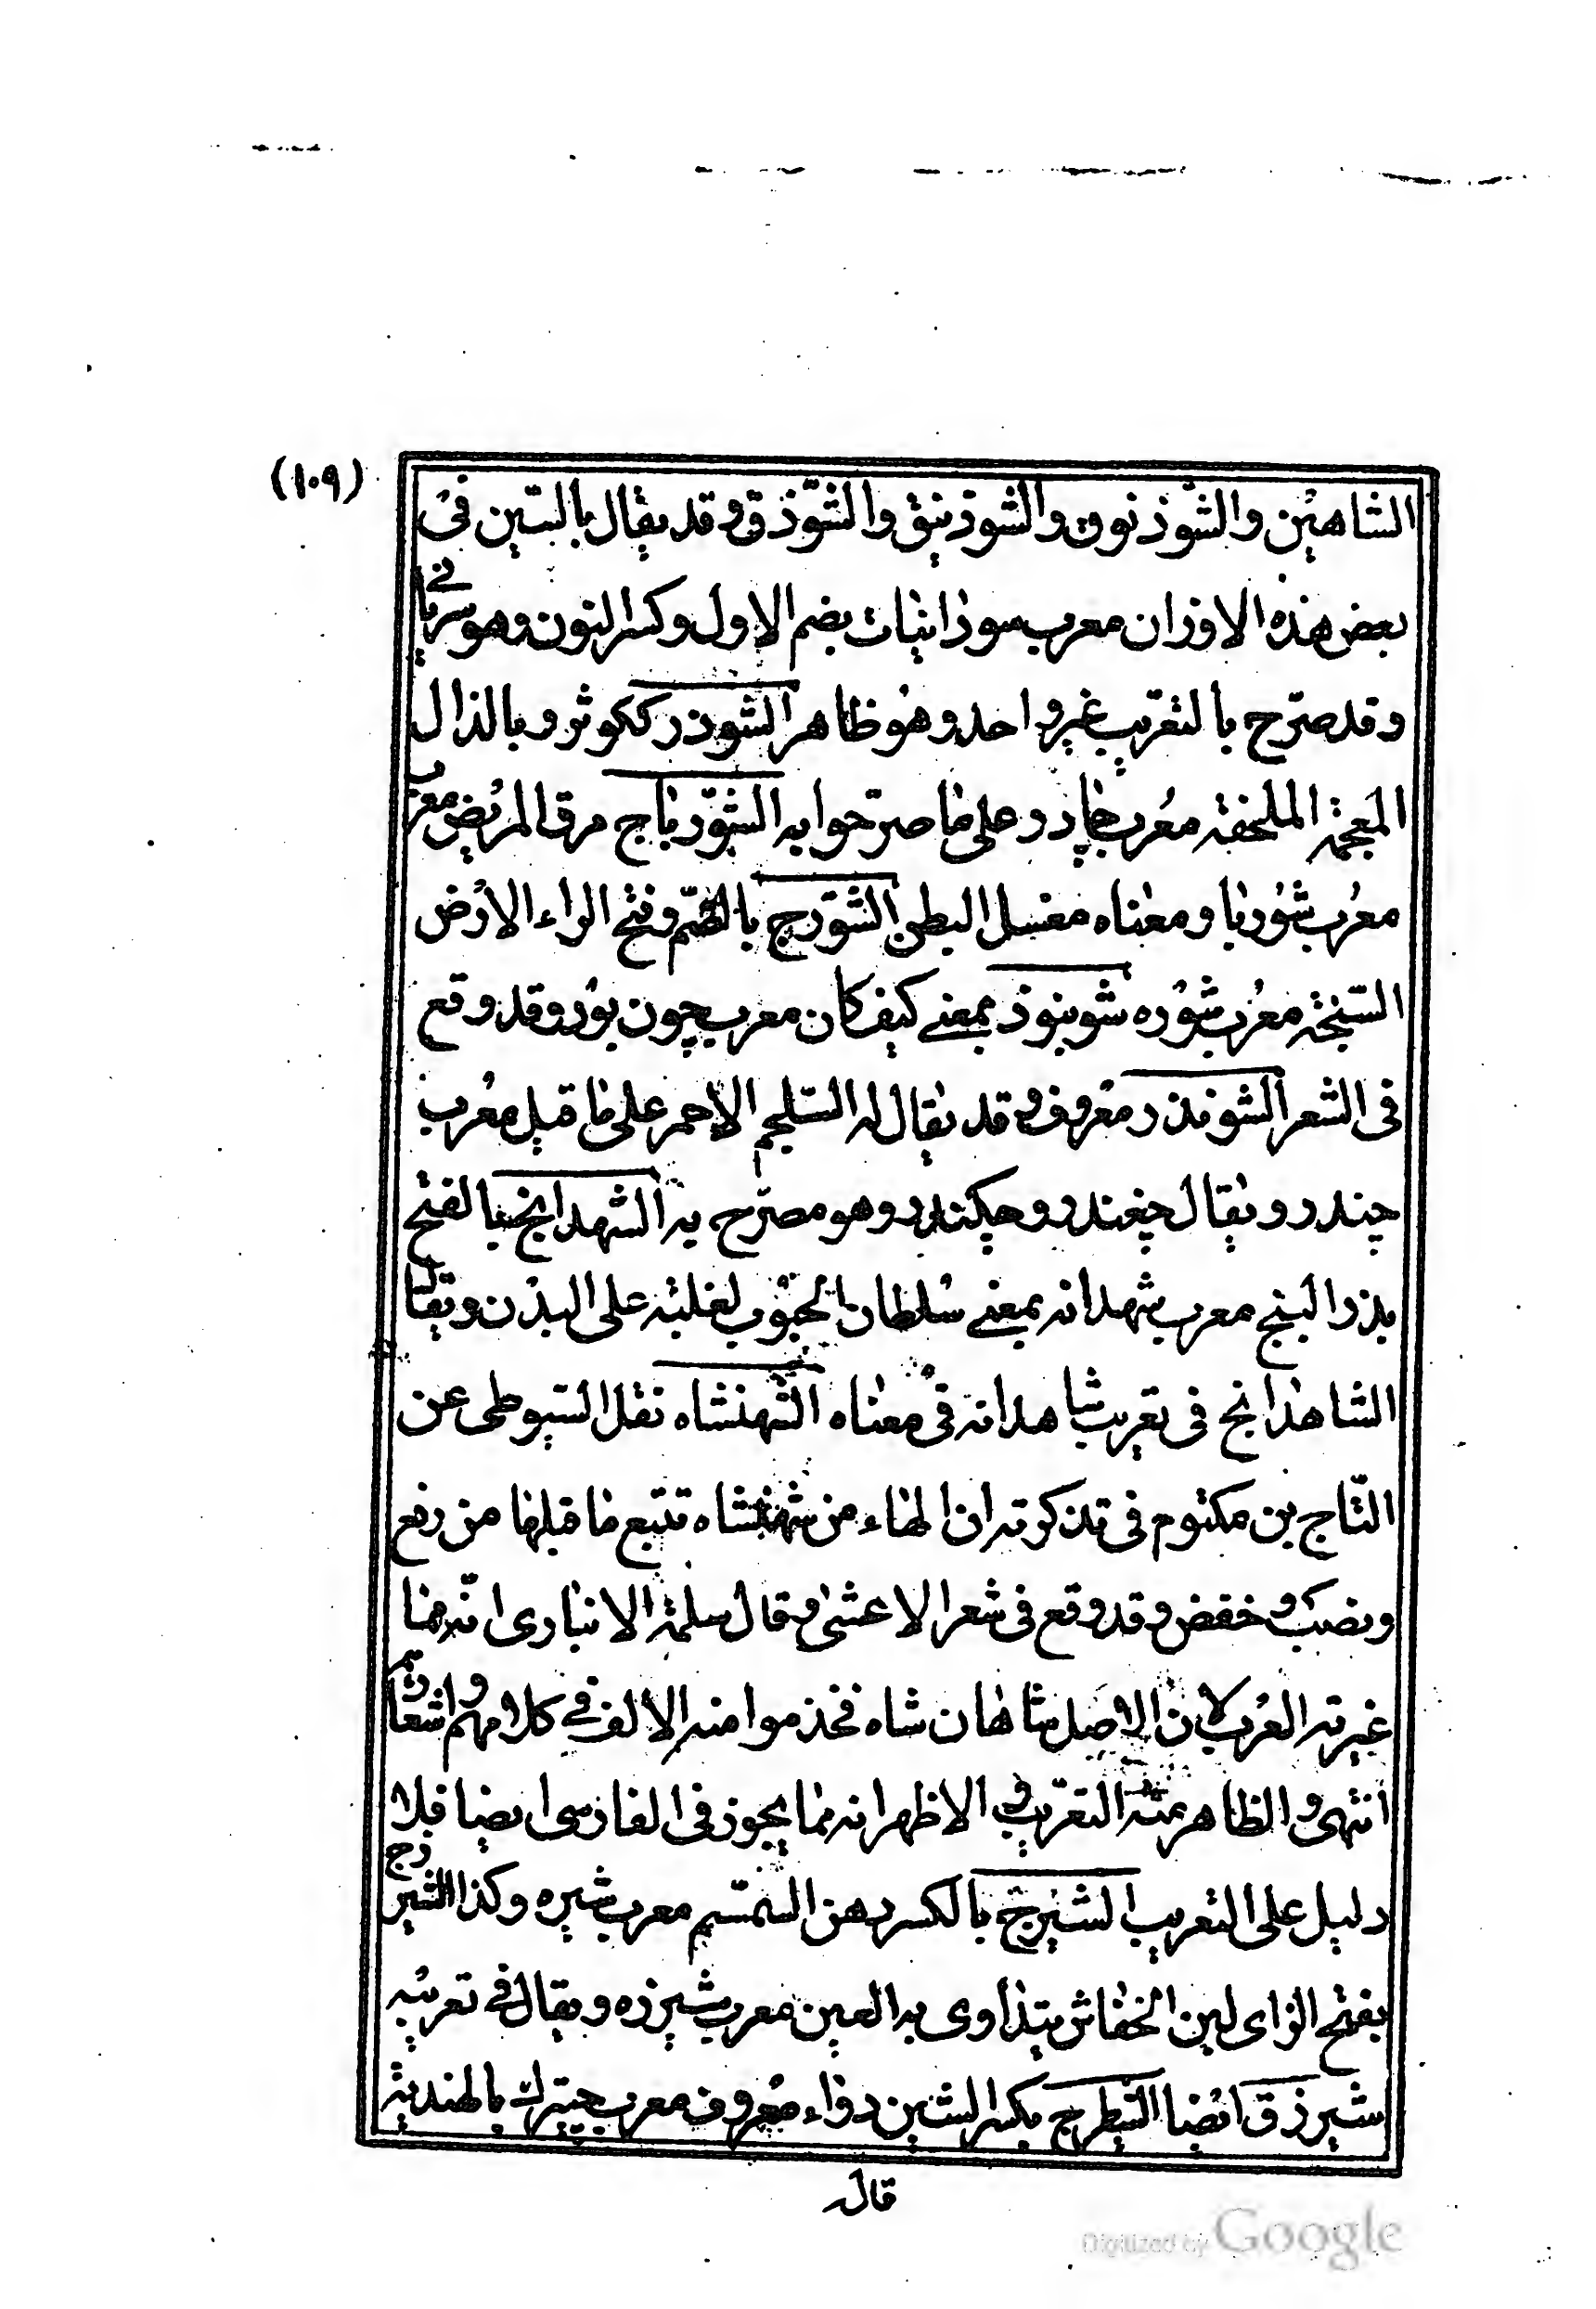 (١٠٩)
الشاهين والشوذنوق والشوذنيق والشوّذق وقد يقال بالسّين فى
بعض هذه الاوزان معرب سودانيات بضم الاول وكسر النون وهو سريانى
وقد صرّح بالتعريب غير واحد وهو ظاهر الشوذر ككوثر وبالذال
المعجمة الملحفة معرب چادر على ما صرّحوا به الشورباج مرق المريض معرب
معرب شوربا ومعناه مغسل البطن الشورج بالضّم وفتح الراء الارض
السّبخة معرب شوره شوبنوذ بمعنے كيف كان معرب چون بود وقد وقع
فى الشعر الشوندر معروف وقد يقال له السّلجم الاحمر على ما قيل معرب
چندر ويقال چغندر وچكندر وهو مصرّح به الشهدانج بالفتح
بذر البنج معرب شهدانه بمعنے سلطان الحبوب لغلبته على البدن ويقال
الشاهدانج فى تعريب شاهدانه فى معناه الشهنشاه نقل السّيوطى عن
التّاج بن مكتوم فى تذكرته ان الهاء من شهنشاه تتبع ما قبلها من رفع
ونصب وخفض وقد وقع فى شعر الاعشى وقال سلمة الانبارى انّه مما
غيرته العرب لان الاصل شاهان شاه فخذموا منه الالف فے كلامهم واشعارهم
انتهى والظاهر منه التعريب والاظهر انه مما يجوز فى الفارسى ايضا فلا
دليل على التعريب الشيرج بالكسر دهن السمسم معرب شيره وكذا الشيرزج
بفتح الزاى لبن الخفاش يتداوى به العين معرب شيرزه ويقال فے تعريبه
شيرزق ايضا الشيطرج بكسر الشين دواء معروف معرب چيترك بالهندية
قال
Digitized by Google